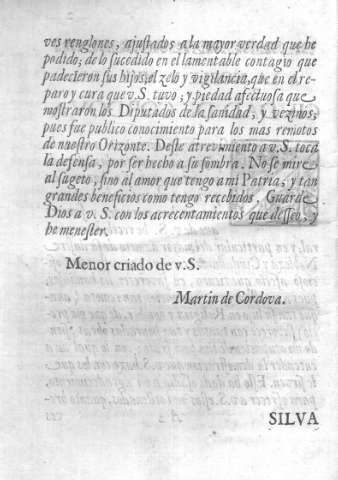 ves renglones, ajustados a la mayor verdad que he
podido; de lo sucedido en el lamentable contagio que
padecieron sus hijos; el zelo y vigilancia, que en el re-
paro y cura que v. S. tuvo; y piedad afectuosa que
mostraron los Diputados de la sanidad, y vezinos,
pues fue publico conocimiento para los mas remotos
de nuestro Orizonte. Deste atrevimiento a v. S. toca
la defensa, por ser hecho a su sombra. No se mire
al sugeto, sino al amor que tengo a mi Patria, y tan
grandes beneficios como tengo recebidos, Guarde
Dios a v. S. con los acrecentamientos que desseo, y
he menester.
Menor criado de v. S.
Martin de Cordova.
SILVA